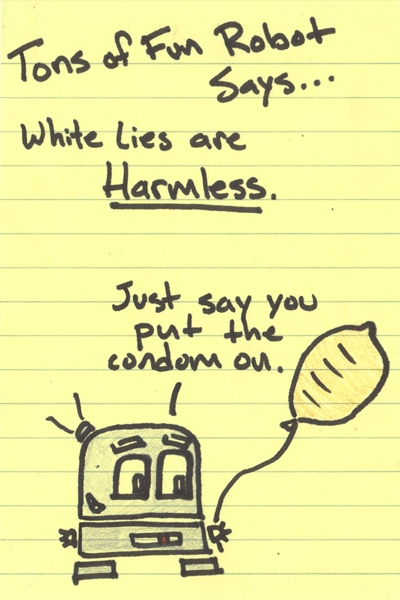 Tons of Fun Robot
Says...
White Lies are
Harmless.
Just say you
put the
condom on.